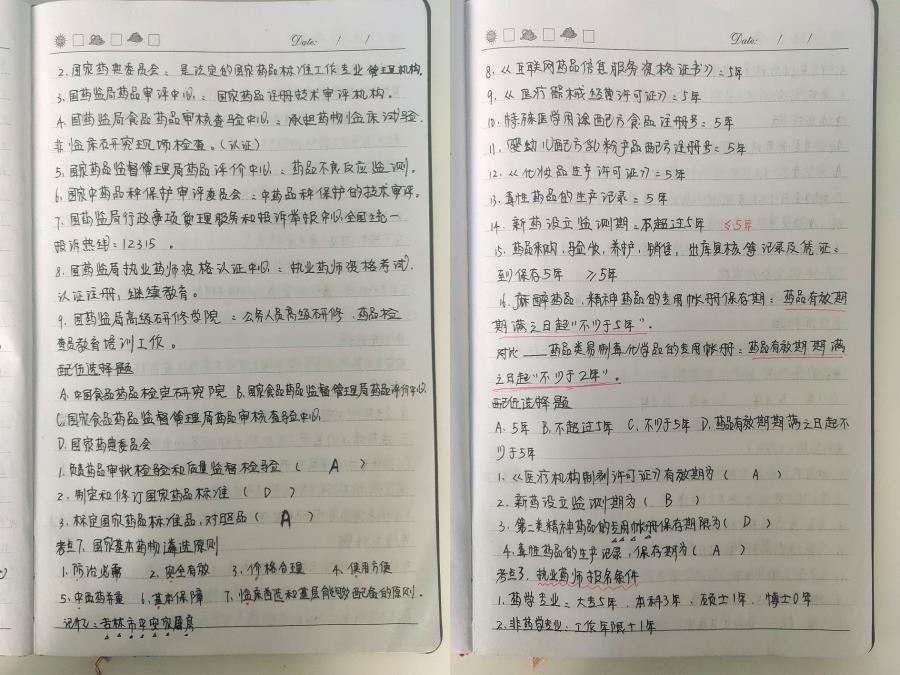 Date: / /
2.国家药典委员会：是法定的国家药品标准工作专业管理机构.
3.国药监局药品审评中心：国家药品注册技术审评机构.
4.国药监局食品药品审核查验中心：承担药物临床试验.
非临床研究现场检查。(认证)
5.国家药品监督管理局药品评价中心：药品不良反应监测.
6.国家中药品种保护审评委员会：中药品种保护的技术审评.
7.国药监局行政事项受理服务和投诉举报中心全国统一
投诉热线=12315。
8.国药监局执业药师资格认证中心：执业药师资格考试.
认证注册，继续教育。
9.国药监局高级研修学院：公务人员高级研修、药品检
查员教育培训工作。
配伍选择题
A.中国食品药品检定研究院 B.国家食品药品监督管理局药品评价中心
C.国家食品药品监督管理局药品审核查验中心
D.国家药典委员会
1.负责药品审批检验和质量监督检验（ A ）
2.制定和修订国家药品标准（ D ）
3.标定国家药品标准品,对照品（ A ）
考点7.国家基本药物遴选原则
1.防治必需 2.安全有效 3.价格合理 4.使用方便
5.中西药并重 6.基本保障 7.临床首选和基层能够配备的原则.
记忆：吉林市平安家居房
Date: / /
8.《互联网药品信息服务资格证书》=5年
9.《医疗器械经营许可证》=5年
10.特殊医学用途配方食品注册号=5年
11.婴幼儿配方奶粉产品配方注册号=5年
12.《化妆品生产许可证》=5年
13.毒性药品的生产记录=5年
14.新药设立监测期=不超过5年 ≤5年
15.药品采购,验收,养护,销售,出库复核等记录及凭证=
到保存5年 ≥5年
16.麻醉药品、精神药品的专用帐册保存期：药品有效期
期满之日起"不少于5年".
对比——药品类易制毒化学品的专用帐册：药品有效期期满
之日起"不少于2年"。
配伍选择题
A.5年 B.不超过5年 C.不少于5年 D.药品有效期期满之日起不
少于5年
1.《医疗机构制剂许可证》有效期为（ A ）
2.新药设立监测期为（ B ）
3.第二类精神药品的专用帐册保存期限为（ D ）
4.毒性药品的生产记录,保存期为（ A ）
考点3.执业药师报名条件
1.药学专业=大专5年、本科3年、硕士1年、博士0年
2.非药学专业：工作年限+1年